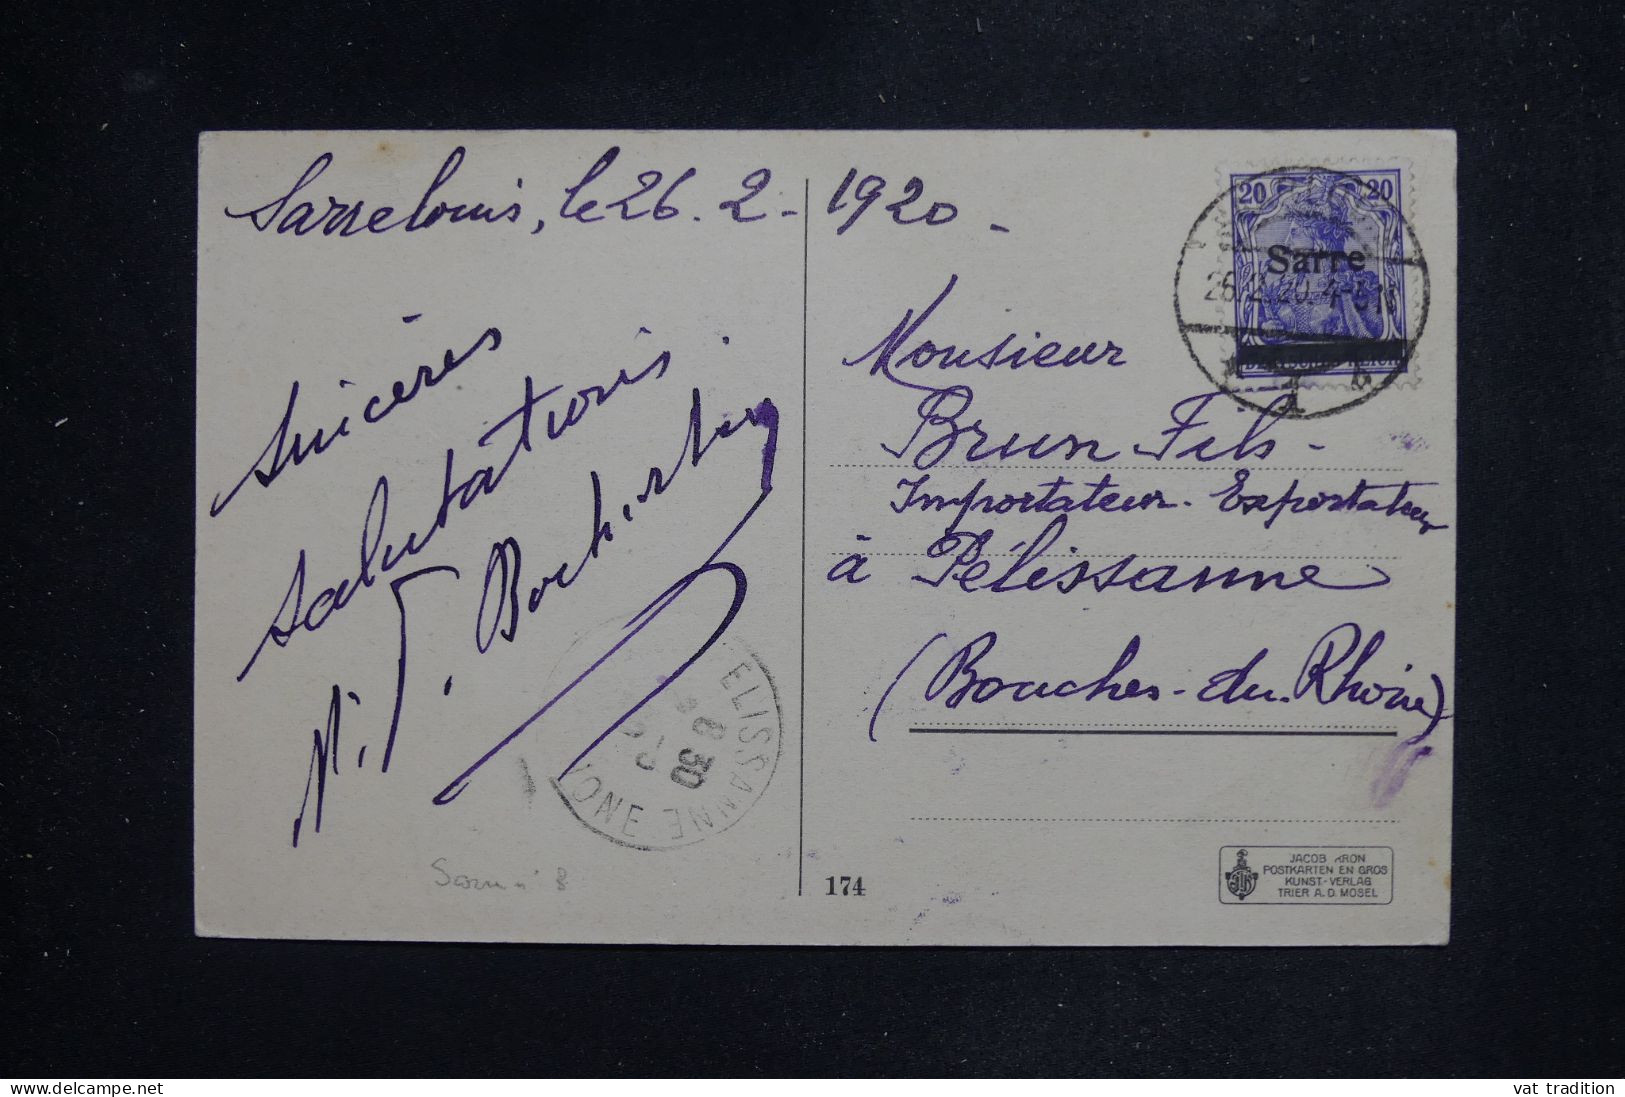 Sarrelouis, le 26.2-1920-
Sincères
Salutations
20 20
Sarre
26.2.20.4-5
Monsieur
Brun Fils-
Importateur-Exportateur
à Pélissanne
(Bouches-du-Rhône)
ELISSANNE
8 30
174
JACOB KRON
POSTKARTEN EN GROS
KUNST-VERLAG
TRIER A.D. MOSEL
delcampe.net
vat tradition